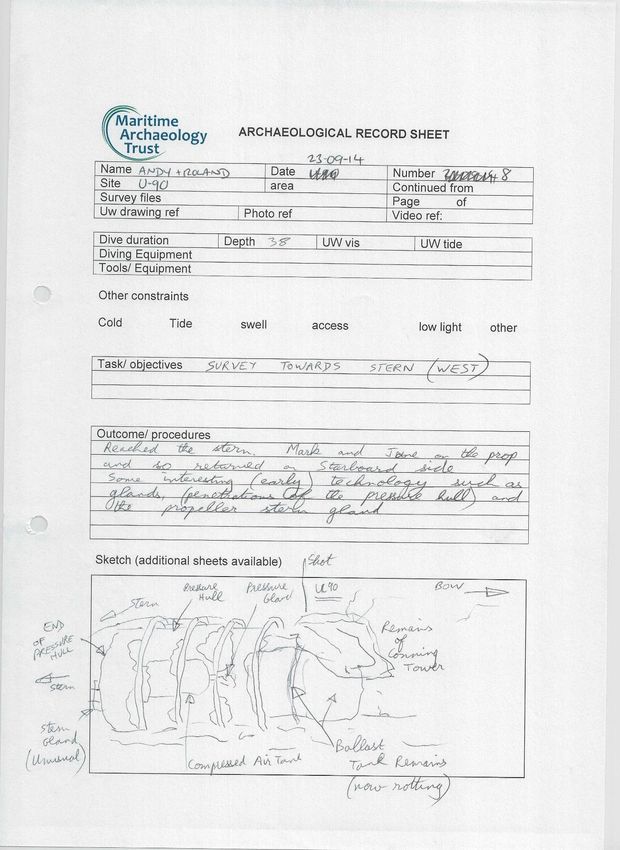 Maritime
Archaeology
Trust
ARCHAEOLOGICAL RECORD SHEET
Name ANDY + ROLAND Date 23-09-14 Number 8
Site U-90 area Continued from
Survey files Page of
Uw drawing ref Photo ref Video ref:
Dive duration Depth 38 UW vis UW tide
Diving Equipment
Tools/ Equipment
Other constraints
Cold Tide swell access low light other
Task/ objectives SURVEY TOWARDS STERN (WEST)
Outcome/ procedures
Reached the stern. Mark and on the prop
and so returned on Starboard side
Some interesting (early) technology such as
glands, (penetrations of the pressure hull) and
the propeller stern gland
Sketch (additional sheets available)
Shot
U90
BOW
Stern
Pressure
Hull
Pressure
Gland
END
OF
PRESSURE
HULL
Remains
of
Conning
Tower
Stern
Stern
Gland
(Unusual)
Compressed Air Tank
Ballast
Tank Remains
(now rotting)